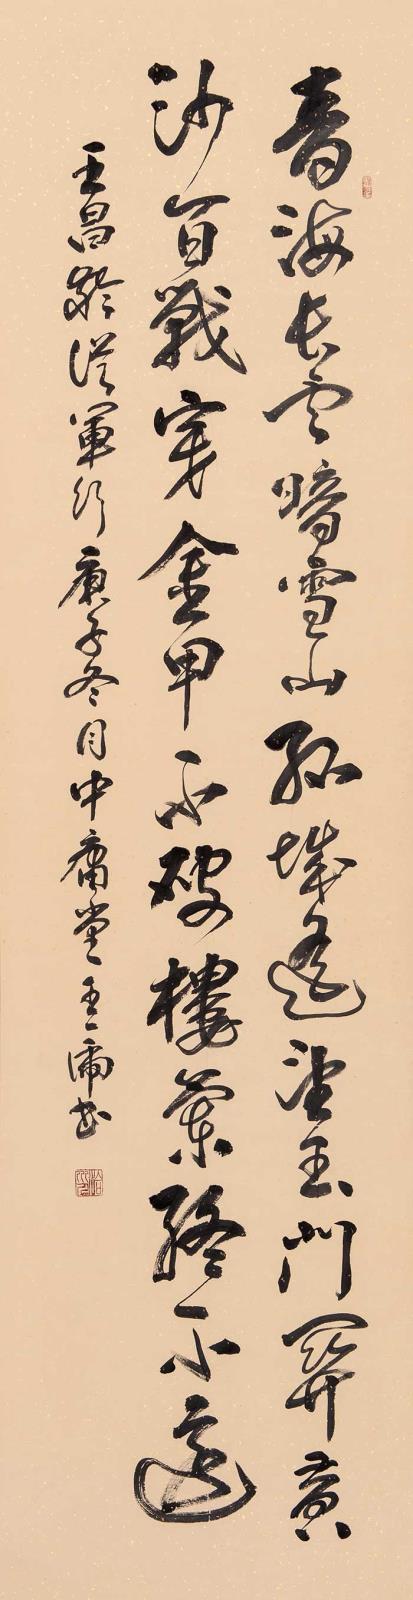 青海長雲暗雪山孤城遙望玉門關黃
沙百戰穿金甲不破樓蘭終不還
王昌齡從軍行庚子冬月中庸堂王書